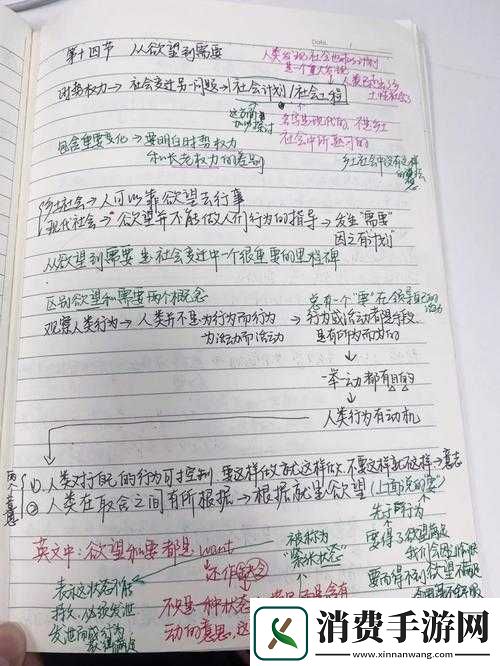 第十四节 从欲望到需要
Date
人类发现社会也可以计划
是一个重大发现
人类已走出了乡
土性社会了
时势权力→社会变迁另一问题→社会计划/社会工程
这方面
加以探讨
名字是现代的,不是乡土
社会中所熟习的
包含重要变化→要明白时势权力
和长老权力的差别
乡土社会中没有这样
的
乡土社会→人可以靠欲望去行事
现代社会→欲望并不能做人们行为的指导→发生“需要”
因之有“计划”
从欲望到需要是社会变迁中一个很重要的里程碑
区别欲望和需要两个概念
观察人类行为→人类并不是为行为而行为
为活动而活动
总有一个“要”在领导自己的活动
→行为或活动都是手段
是有所为而为的
一举一动都有目的
人类行为有动机
两个意思
①人类对于自己的行为可以控制,要这样做就这样做,不要这样就不这样→意志
②人类在取舍之间有所根据→根据就是欲望(上面说的“要”)
先于行为
英文中:欲望和要都是want
还作缺乏
被称为
“紧张状态”
要得了欲望满足
我们会因此愉快
要而得不到欲望不满足
表示这状态不能
持久,必须发泄
发泄而成行为
获得满足
不只是一种状态
动的意思,这